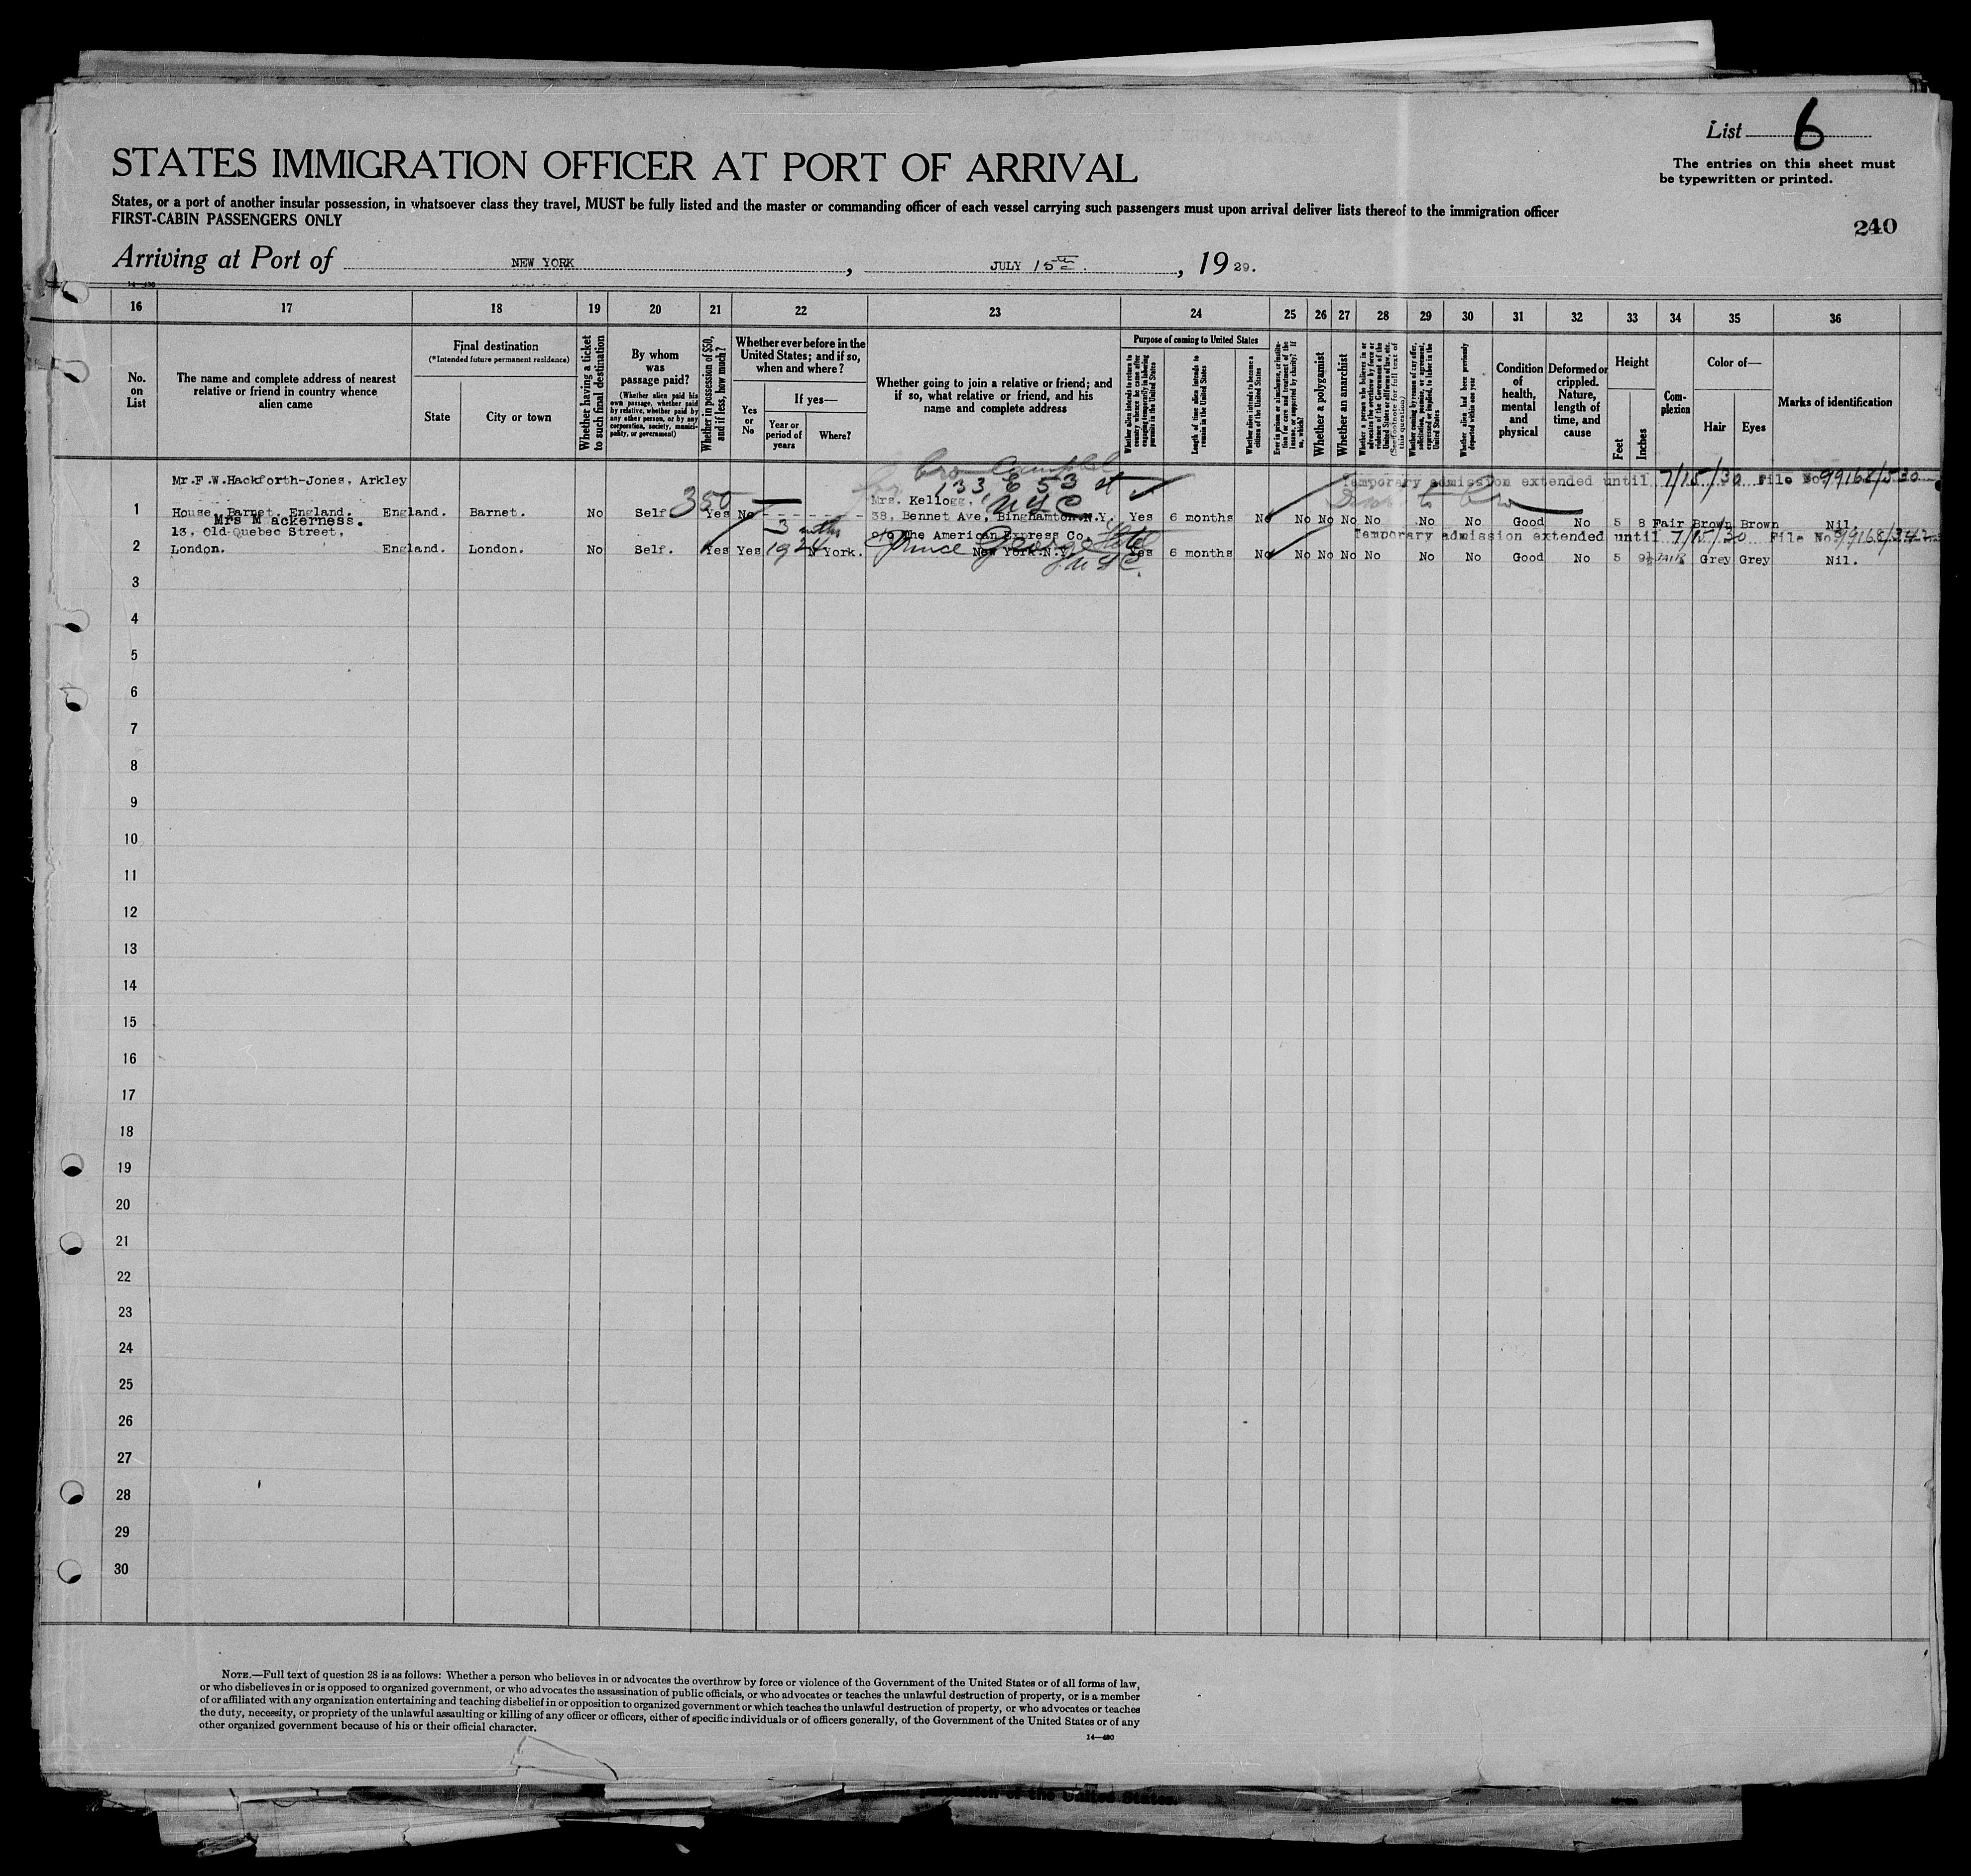 List 6
The entries on this sheet must
be typewritten or printed.
STATES IMMIGRATION OFFICER AT PORT OF ARRIVAL
States, or a port of another insular possession, in whatsoever class they travel, MUST be fully listed and the master or commanding officer of each vessel carrying such passengers must upon arrival deliver lists thereof to the immigration officer
FIRST-CABIN PASSENGERS ONLY
240
Arriving at Port of NEW YORK, JULY 15th, 1929.
14-430
16 17 18 19 20 21 22 23 24 25 26 27 28 29 30 31 32 33 34 35 36
No. on List
The name and complete address of nearest
relative or friend in country whence
alien came
Final destination
(*Intended future permanent residence)
State
City or town
Whether having a ticket
to such final destination
By whom
was
passage paid?
(Whether alien paid his
own passage, whether paid
by relative, whether paid by
any other person, or by any
corporation, society, munici-
pality, or government)
Whether in possession of $50,
and if less, how much?
Whether ever before in the
United States; and if so,
when and where?
Yes
or
No
If yes—
Year or
period of
years
Where?
Whether going to join a relative or friend; and
if so, what relative or friend, and his
name and complete address
Purpose of coming to United States
Whether alien intends to return to
country whence he came after
engaging temporarily in laboring
pursuits in the United States
Length of time alien intends to
remain in the United States
Whether alien intends to become a
citizen of the United States
Ever in prison or almshouse, or institu-
tion for care and treatment of the
insane, or supported by charity? If
so, which?
Whether a polygamist
Whether an anarchist
Whether a person who believes in or
advocates the overthrow by force or
violence of the Government of the
United States or all forms of law, etc.
(See footnote for full text of
this question)
Whether coming by reason of any offer,
solicitation, promise, or agreement,
expressed or implied, to labor in the
United States
Whether alien had been previously
deported within one year
Condition
of
health,
mental
and
physical
Deformed or
crippled.
Nature,
length of
time, and
cause
Height
Feet
Inches
Com-
plexion
Color of—
Hair
Eyes
Marks of identification
c/o Campbel
133 E 53 st
NYC
Temporary admission extended until 7/15/30 File No 99168/530
Mr.F.W.Hackforth-Jones, Arkley
350
Mrs. Kellogg,
1 House, Barnet, England. England. Barnet. No Self Yes No - - - - - - - 38, Bennet Ave, Binghamton N.Y. Yes 6 months No No No No No No No Good No 5 8 Fair Brown Brown Nil.
Mrs M ackerness.
13, Old Quebec Street,
3 mths
c/o The American Express Co.
Prince George Hotel
NYC
Temporary admission extended until 7/15/30 File No 99168/342
2 London. England. London. No Self. Yes Yes 1924 N York. New York N.Y. Yes 6 months No No No No No No No Good No 5 9½ Fair Grey Grey Nil.
3
4
5
6
7
8
9
10
11
12
13
14
15
16
17
18
19
20
21
22
23
24
25
26
27
28
29
30
NOTE.—Full text of question 28 is as follows: Whether a person who believes in or advocates the overthrow by force or violence of the Government of the United States or of all forms of law,
or who disbelieves in or is opposed to organized government, or who advocates the assassination of public officials, or who advocates or teaches the unlawful destruction of property, or is a member
of or affiliated with any organization entertaining and teaching disbelief in or opposition to organized government or which teaches the unlawful destruction of property, or who advocates or teaches
the duty, necessity, or propriety of the unlawful assaulting or killing of any officer or officers, either of specific individuals or of officers generally, of the Government of the United States or of any
other organized government because of his or their official character.
14—430
of the United States.